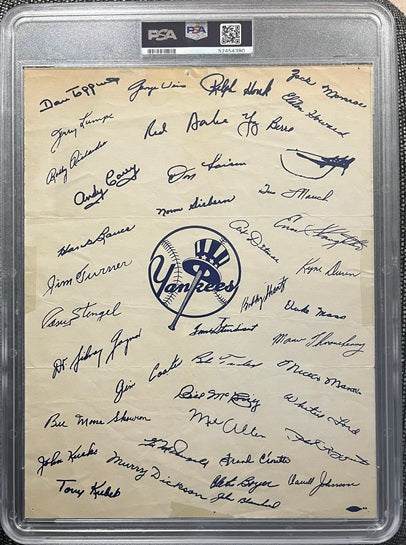 PSA PSA
52454380
Dan Topping George Weiss Ralph Houk Jack Monroe
Elston Howard
Jerry Lumpe Red Yogi Berra
Bobby Richardson
Andy Carey Don Larsen Gus Mauch
Norm Siebern
Hank Bauer Art Ditmar Enos Slaughter
Jim Turner Yankees Ryne Duren
Bobby Shantz
Casey Stengel Duke Maas
Tom Sturdivant
Dr. Sidney Gaynor Marv Throneberry
Jim Coates Bob Turley Mickey Mantle
Gil McDougald
Whitey Ford
Bill Moose Skowron Mel Allen
John Kucks Frank Crosetti
Murry Dickson Darrell Johnson
Tony Kubek John Blanchard